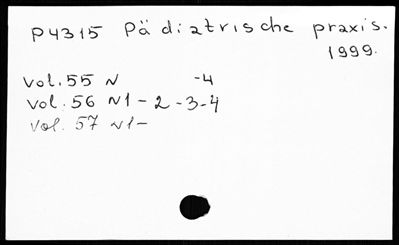 P4315 Pädiatrische praxis.
1999.
vol. 55 N -4
vol. 56 N1-2-3-4
vol. 57 N1-